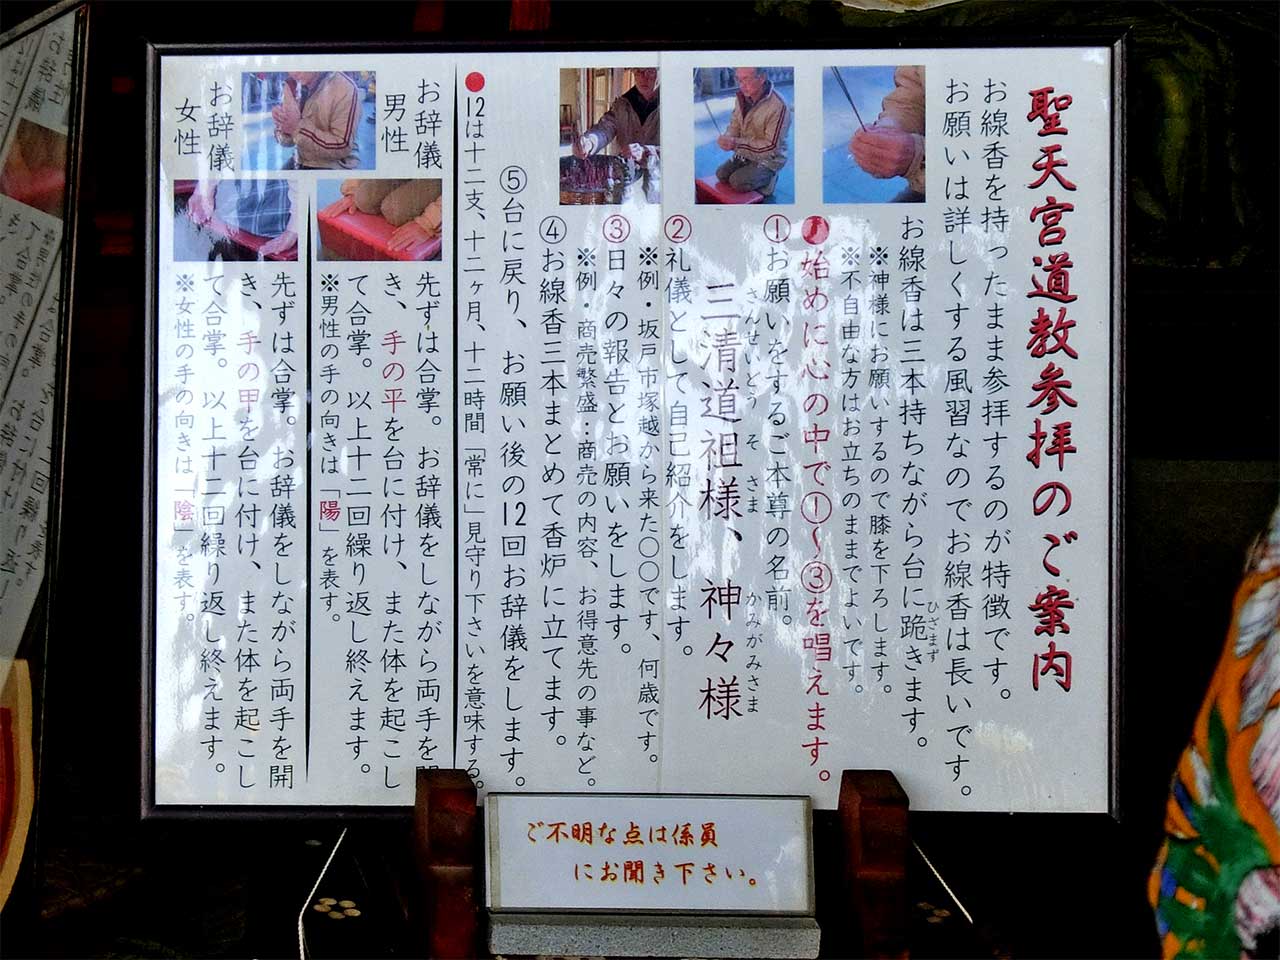 聖天宮道教参拝のご案内
お線香を持ったまま参拝するのが特徴です。
お願いは詳しくする風習なのでお線香は長いです。
お線香は三本持ちながら台に跪きます。
ひざまず
※神様にお願いするので膝を下ろします。
※不自由な方はお立ちのままでよいです。
始めに心の中で①～③を唱えます。
①お願いをするご本尊の名前。
さんせいどう そ さま かみがみさま
三清道祖様、神々様
②礼儀として自己紹介をします。
※例・坂戸市塚越から来た〇〇です、何歳です。
③日々の報告とお願いをします。
※例・商売繁盛:商売の内容、お得意先の事など。
④お線香三本まとめて香炉に立てます。
⑤台に戻り、お願い後の12回お辞儀をします。
●12は十二支、十二ヶ月、十二時間「常に」見守り下さいを意味する。
お辞儀
男性
先ずは合掌。お辞儀をしながら両手を開
き、手の平を台に付け、また体を起こし
て合掌。以上十二回繰り返し終えます。
※男性の手の向きは「陽」を表す。
お辞儀
女性
先ずは合掌。お辞儀をしながら両手を開
き、手の甲を台に付け、また体を起こし
て合掌。以上十二回繰り返し終えます。
※女性の手の向きは「陰」を表す。
ご不明な点は係員
にお聞き下さい。